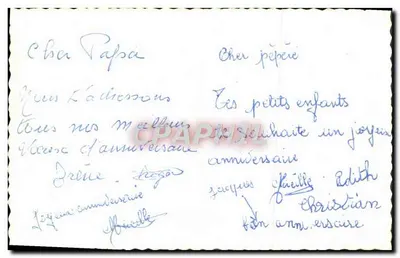 Cher Papa
Nous t'adressons
tous nos meilleurs
voeux d'anniversaire
Irène
Joyeux anniversaire
Mireille
Cher pépéré
Tes petits enfants
te souhaite un joyeux
anniversaire
Jacques Mireille Edith
Christian
bon anniversaire